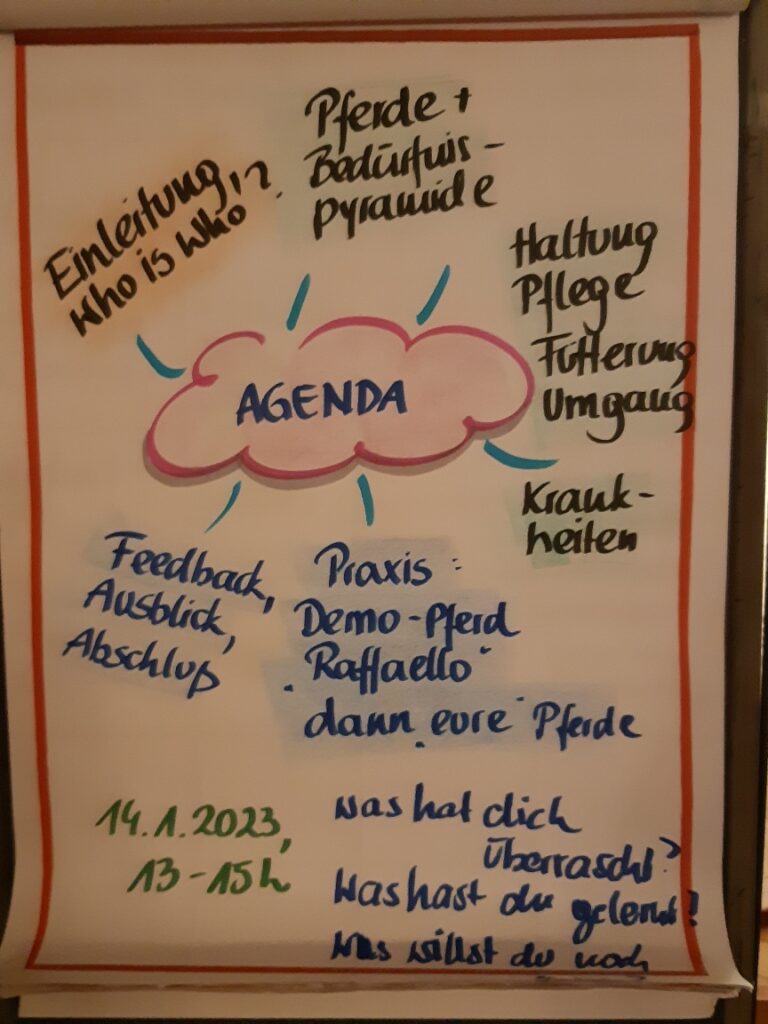 Einleitung,
Who is Who?
Pferde +
Bedürfnis-
pyramide
Haltung
Pflege
Fütterung
Umgang
Krank-
heiten
AGENDA
Feedback,
Ausblick,
Abschluß
Praxis:
Demo-Pferd
"Raffaello"
dann "eure" Pferde
14.1.2023,
13-15h
Was hat dich
überrascht?
Was hast du gelernt?
Was willst du noch